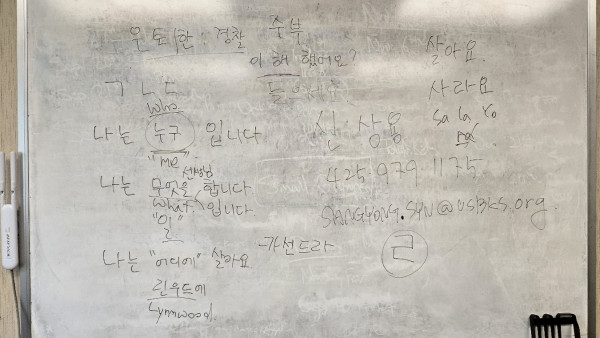 경찰 주부
이해 했어요?
살아요
ㄱ ㄴ ㄷ
사라요
Who
sa la yo
나는 누구 입니다
신 상용
"me"
선생님
425 979 1175
나는 무엇을 합니다.
what 입니다
"이"
SANGYONG.SYN@USBKS.org
나는 "어디에" 살아요
카산드라
ㄹ
린우드에
Lynnwood.